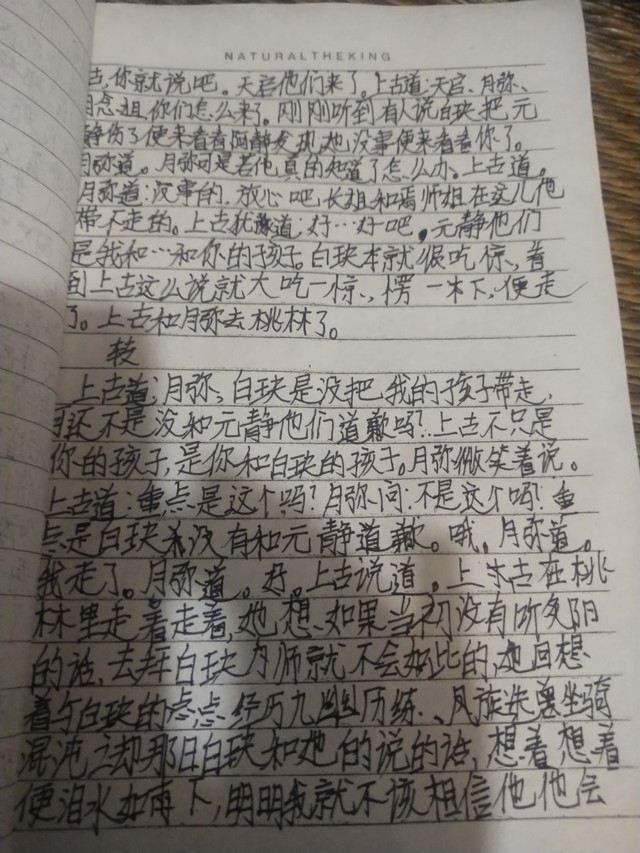 NATURALTHEKING
古,你就说吧。天启他们来了。上古道:天启、月弥、
念姐你们怎么来了。刚刚听到有人说白玦把元
静伤了便来看看阿静发现她没事便来看看你了。
月弥道。月弥可是若他真的知道了怎么办。上古道。
月弥道:没事的,放心吧长姐和焉师姐在这儿他
带不走的。上古犹豫道:好…好吧,元静他们
是我和…和你的孩子。白玦本就很吃惊、看
到上古这么说就大吃一惊、愣一木下,便走
了。上古和月弥去桃林了。
转
上古道:月弥,白玦是没把我的孩子带走,
还不是没和元静他们道歉吗?上古不只是
你的孩子,是你和白玦的孩子。月弥微笑着说。
上古道:重点是这个吗?月弥问:不是这个吗?重
点是白玦杀没有和元静道歉。哦。月弥道。
我走了。月弥道。好。上古说道。上古在桃
林里走着走着,她想如果当初没有听炙阳
的话,去拜白玦为师就不会如此的,她回想
着与白玦的点点经历九幽历练、凤族选兽坐骑
混沌之劫那日白玦和她的说的话,想着想着
便泪水如雨下,明明我就不该相信他他会